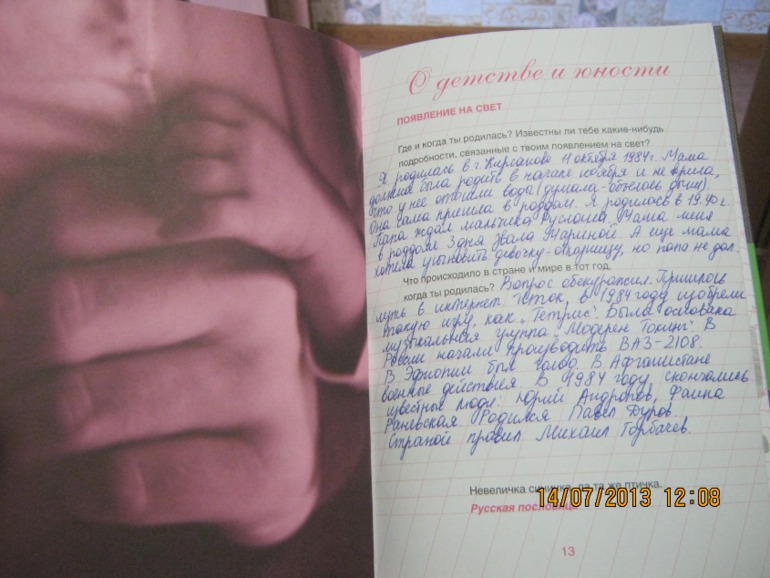 О детстве и юности
ПОЯВЛЕНИЕ НА СВЕТ
Где и когда ты родилась? Известны ли тебе какие-нибудь
подробности, связанные с твоим появлением на свет?
Я родилась в г. Кирсанове 11 октября 1984 г. Мама
должна была родить в начале ноября и не верила,
что у неё отошли воды (думала - объелась дыни).
Она сама пришла в роддом. Я родилась в 19.40 г.
Папа ждал мальчика Руслана. Мама меня
в роддоме 3 дня звала Мариной. А еще мама
хотела усыновить девочку- , но папа не дал.
Что происходило в стране и мире в тот год,
когда ты родилась? Вопрос обескуражил. Пришлось
лезть в интернет. Итак, в 1984 году изобрели
такую игру, как "Тетрис". Была основана
музыкальная группа "Модерен Токинг". В
России начали производить ВАЗ-2108.
В Эфиопии был голод. В Афганистане
военные действия. В 1984 году скончались
известные люди: Юрий Андропов, Фаина
Раневская. Родился Павел Дуров.
Страной правил Михаил Горбачев.
Невеличка синичка, да та же птичка.
Русская пословица
14/07/2013 12:08
13